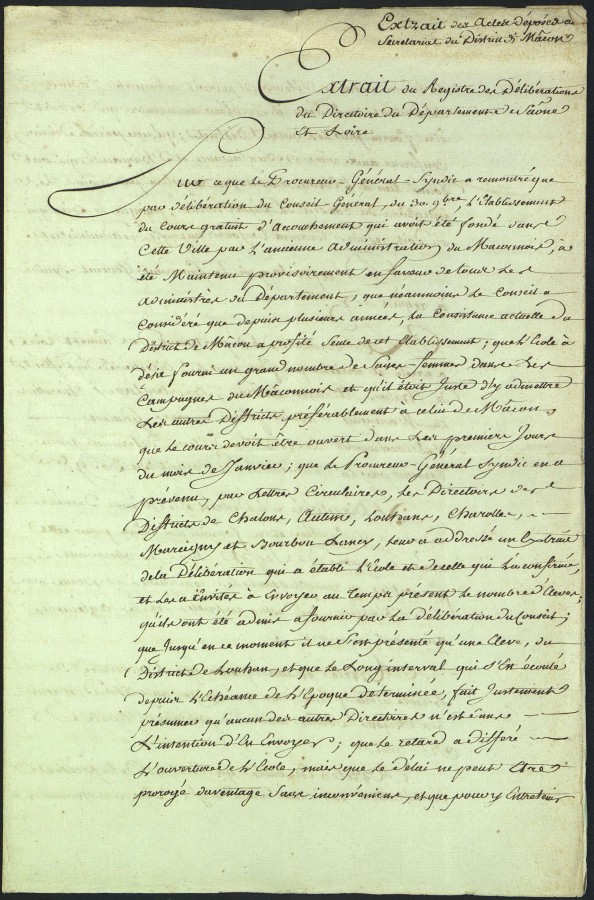 Extrait des Actes déposés au
Secretariat du District de Mâcon
Extrait du Registre des Délibérations
du Directoire du Département de Saône
et Loire
Sur ce que le Procureur-Général-Syndic a remontré que
par délibération du Conseil-Général, du 30. 9bre l'Etablissement
du Cours gratuit d'Acouchement qui avoit été fondé dans
Cette Ville par l'ancienne Administration du Maconnois, a
été Maintenu provisoirement en faveur de tous Les
Administrés du Département, que néanmoins Le Conseil a
Considéré que depuis plusieurs années, La Consistance actuelle du
District de Mâcon a profité Seule de cet établissement; que l'école a
déjà fourni un grand nombre de Sages-femmes dans Les
Campagnes du Mâconnois et qu'il étoit Juste d'y admettre
Les autres Districts préférablement à celui de Mâcon,
que le cours devoit être ouvert dans Les premiers Jours
du mois de Janvier; que Le Procureur-Général Syndic en a
prévenu, par Lettres Circulaires, Les Directoires des
Districts de Chalons, Autun, Louhans, Charolles,
Marcigny et Bourbon Lancy, Leur a addressé un Extrait
de la Délibération qui a établi l'Ecole et de celle qui L'a confirmé,
et Les a invités à Envoyer au Temps présent Le nombre d'Eleves
qu'ils ont été admis a fournir par La délibération du Conseil;
que Jusqu'en ce moment il ne S'est présenté qu'une Eleve, du
District de Louhan, et que Le Long interval qui S'est écoulé
depuis L'Echéance de L'Epoque déterminée, fait Justement
présumer qu'aucun des autres Directoires n'est dans
L'intention d'en Envoyer; que Le retard a différé
L'ouverture de L'Ecole, mais que Le délai ne peut être
prorogé davantage Sans inconvéniens, et que pour y Entretenir